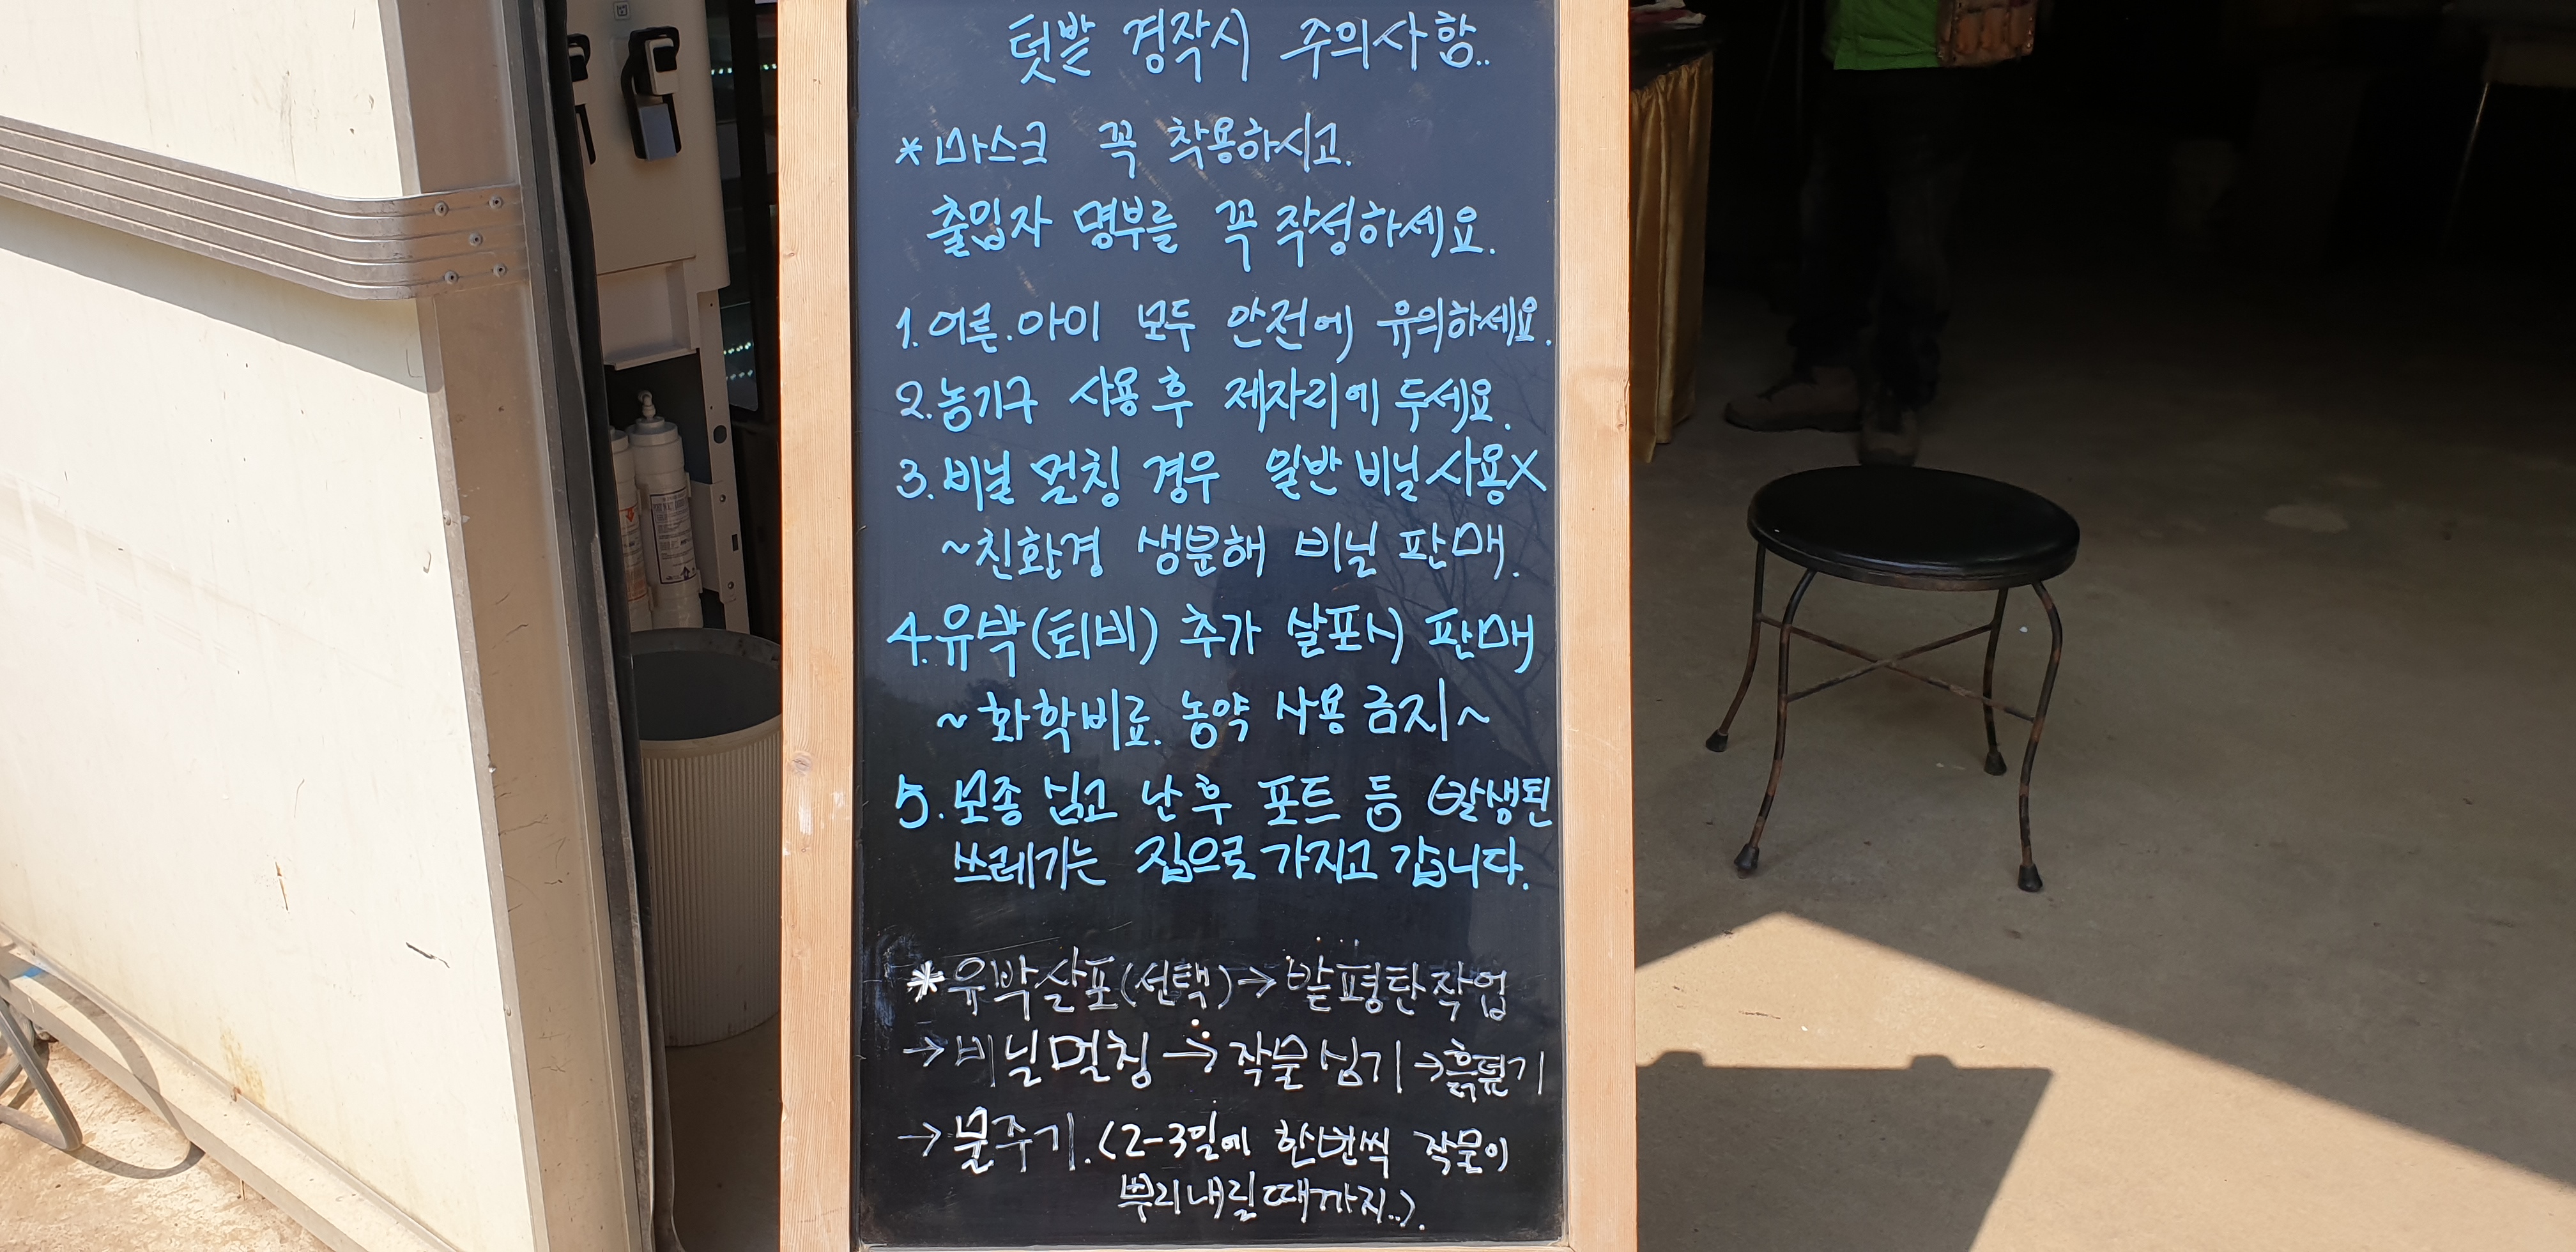 텃밭 경작시 주의사항..
*마스크 꼭 착용하시고.
출입자 명부를 꼭 작성하세요.
1. 어른.아이 모두 안전에 유의하세요.
2. 농기구 사용 후 제자리에 두세요.
3. 비닐 멀칭 경우 일반 비닐 사용X
~친환경 생분해 비닐 판매.
4. 유박(퇴비) 추가 살포시 판매
~화학비료. 농약 사용 금지~
5. 모종 심고 난 후 포트 등 발생된
쓰레기는 집으로 가지고 갑니다.
*유박살포(선택)→밭평탄작업
→비닐멀칭→작물심기→흙덮기
→물주기.(2-3일에 한번씩 작물이
뿌리내릴때까지..).